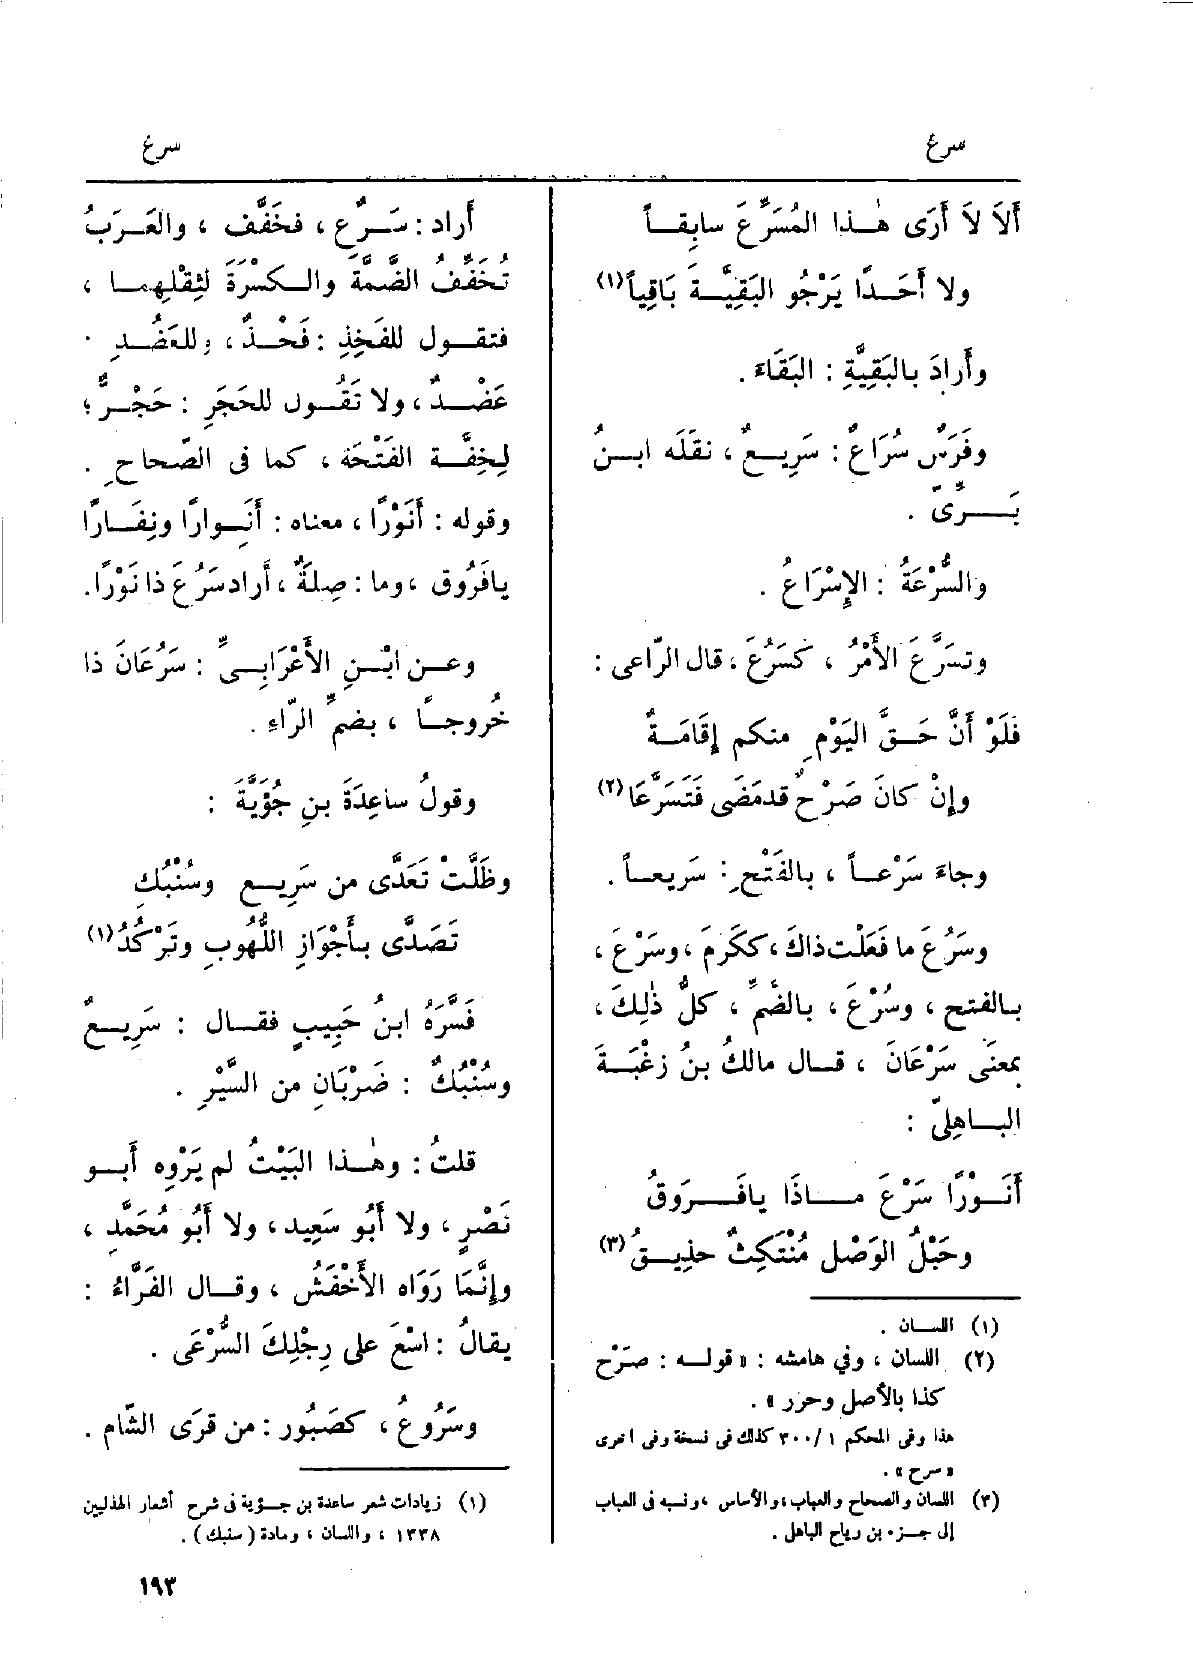 سرغ
سرغ
أَلَا لَا أَرَى هٰذا المُسَرِّعَ سابِقاً
ولا أَحَدًا يَرْجُو البَقِيَّةَ بَاقِياً(١)
وأَرادَ بالبَقِيَّةِ : البَقَاءَ .
وفَرَسٌ سُرَاعٌ : سَرِيعٌ ، نقَلَه ابنُ
بَرِّىّ .
والسُّرْعَةُ : الإِسْرَاعُ .
وتسَرَّعَ الأَمْرُ ، كسَرُعَ ، قال الرّاعى :
فَلَوْ أَنَّ حَقَّ اليَوْمِ منكم إِقَامَةٌ
وإِنْ كانَ صَرْحٌ قد مَضَى فَتَسَرَّعَا(٢)
وجاءَ سَرْعاً ، بالفَتْحِ : سَرِيعاً .
وسَرُعَ ما فَعَلْت ذاكَ ، ككَرُمَ ، وسَرْعَ ،
بالفتح ، وسُرْعَ ، بالضَّمِّ ، كلُّ ذٰلِكَ ،
بمعنَى سَرْعَانَ ، قال مالكُ بنُ زغْبَةَ
الباهِلىّ :
أَنَوْرًا سَرْعَ ماذَا يافَرُوقُ
وحَبْلُ الوَصْلِ مُنْتَكِثٌ حذِيقُ(٣)
(١) اللسان .
(٢) اللسان ، وفي هامشه : « قوله : صَرْح
كذا بالأصل وحرر » .
هذا وفى المحكم ١/ ٣٠٠ كذلك فى نسخة وفى اخرى
« سرح » .
(٣) اللسان والصحاح والعباب ، والأساس ، ونسبه فى العباب
إلى جزء بن رياح الباهلى .
أَراد : سَرُع ، فخَفَّف ، والعَرَبُ
تُخَفِّفُ الضَّمَّةَ والكسْرَةَ لثِقْلِهِما ،
فتقول للفَخِذِ : فَخْذٌ ، وللعَضُدِ
عَضْدٌ ، ولا تَقُول للحَجَرِ : حَجْرٌ ؛
لِخِفَّة الفَتْحَة ، كما فى الصّحاحِ .
وقوله : أَنَوْرًا ، معناه : أَنِوارًا ونِفَارًا
يافَرُوق ، وما : صِلةٌ ، أَراد سَرُعَ ذا نَوْرًا .
وعن ابْنِ الأَعْرَابِىِّ : سَرُعَانَ ذا
خُروجًا ، بضمِّ الرّاءِ .
وقولُ ساعِدَةَ بنِ جُؤَيَّةَ :
وظَلَّتْ تَعَدَّى من سَرِيع وسُنْبُكِ
تَصَدَّى بأَجْوَازِ اللُّهُوبِ وتَرْكُدُ(١)
فَسَّرَهُ ابنُ حَبِيبٍ فقال : سَرِيعٌ
وسُنْبُكٌ : ضَرْبَانِ من السَّيْرِ .
قلتُ : وهٰذا البَيْتُ لم يَرْوِه أَبو
نَصْرٍ ، ولا أَبُو سَعِيد ، ولا أَبُو مُحَمَّدٍ ،
وإِنَّمَا رَوَاه الأَخْفَشُ ، وقال الفَرَّاءُ :
يقالُ : اسْعَ على رِجْلِكَ السُّرْعَى .
وسَرُوعُ ، كصَبُور : من قرَى الشّام .
(١) زيادات شعر ساعدة بن جؤية فى شرح أشعار الهذليين
١٣٣٨ ، واللسان ، ومادة ( سنبك ) .
١٩٣